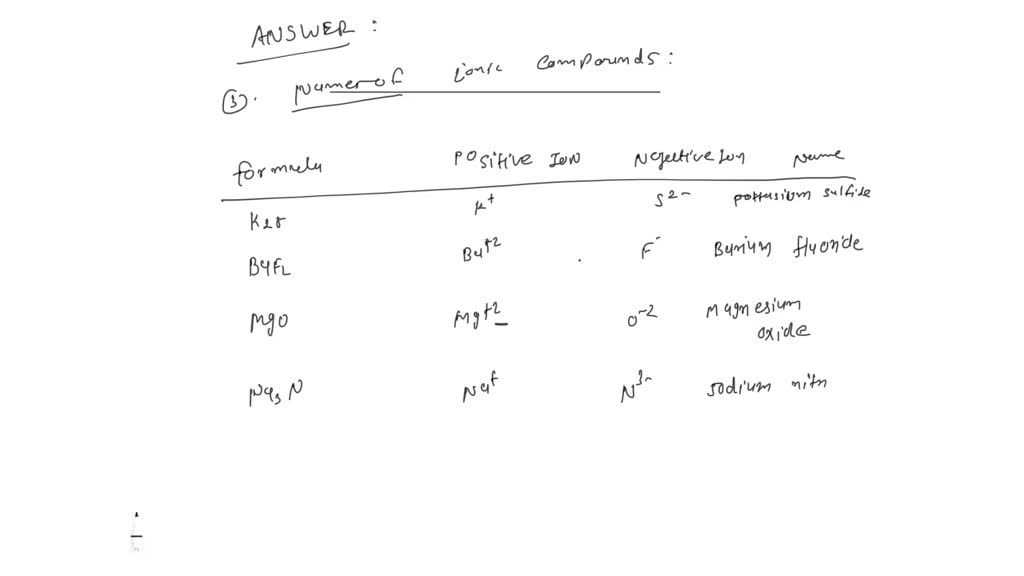 ANSWER :
(3). Names of ionic compounds :
Formula Positive Ion Negative Ion Name
K2S K+ S2- pottasium sulfide
BaF2 Ba+2 F- Barium fluoride
MgO Mg+2 O-2 Magnesium
oxide
Na3N Na+ N3- sodium nitr